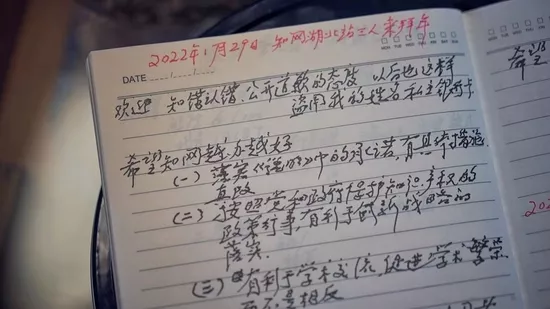 2022年1月29日 知网湖北站三人来拜年
DATE
欢迎 知错认错、公开道歉的态度 以后也这样
盗用我的姓名和
希望知网越办越好
(一) 落实《说明》中的承诺，有具体措施
(二) 按照党和政府保护知识产权的
政策行事，有利于创新战略的
落实.
(三) 有利于学术交流，促进学术繁荣
而不是相反
希望